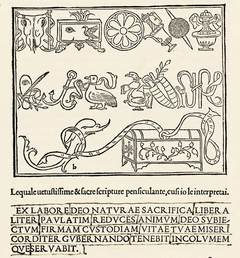 b
Lequale uetustissime & sacre scripture pensiculante, cusi io le interpretai.
EX LABORE DEO NATVRAE SACRIFICA LIBERA
LITER PAVLATIM REDVCES ANIMVM DEO SVBIE
CTVM FIRMAM CVSTODIAM VITAE TVAE MISERI
CORDITER GVBERNANDO TENEBIT INCOLVMEM
QVE SERVABIT.